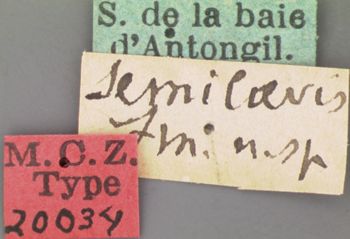 S. de la baie
d'Antongil.
Semilævis
Fm. n. sp
M.C.Z.
Type
20034